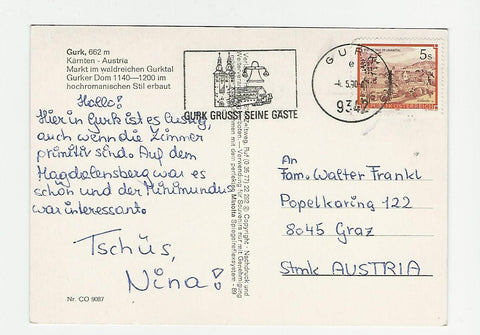 Gurk, 662 m
Kärnten - Austria
Markt im waldreichen Gurktal
Gurker Dom 1140—1200 im
hochromanischen Stil erbaut
Hallo!
Hier in Gurk ist es lustig,
auch wenn die Zimmer
primitiv sind. Auf dem
Magdalensberg war es
schön und der Minimundus
war interessant.
Tschüs,
Nina!
Nr. CO 9087
GURK GRÜSST SEINE GÄSTE
GURK
934
5s
REPUBLIK ÖSTERREICH
Copyright - Nachdruck und
Verwendung für Souvenirs nur mit Genehmigung
Minolta Spiegelreflexsystem - 89
An
Fam. Walter Frankl
Popelkaring 122
8045 Graz
Stmk AUSTRIA